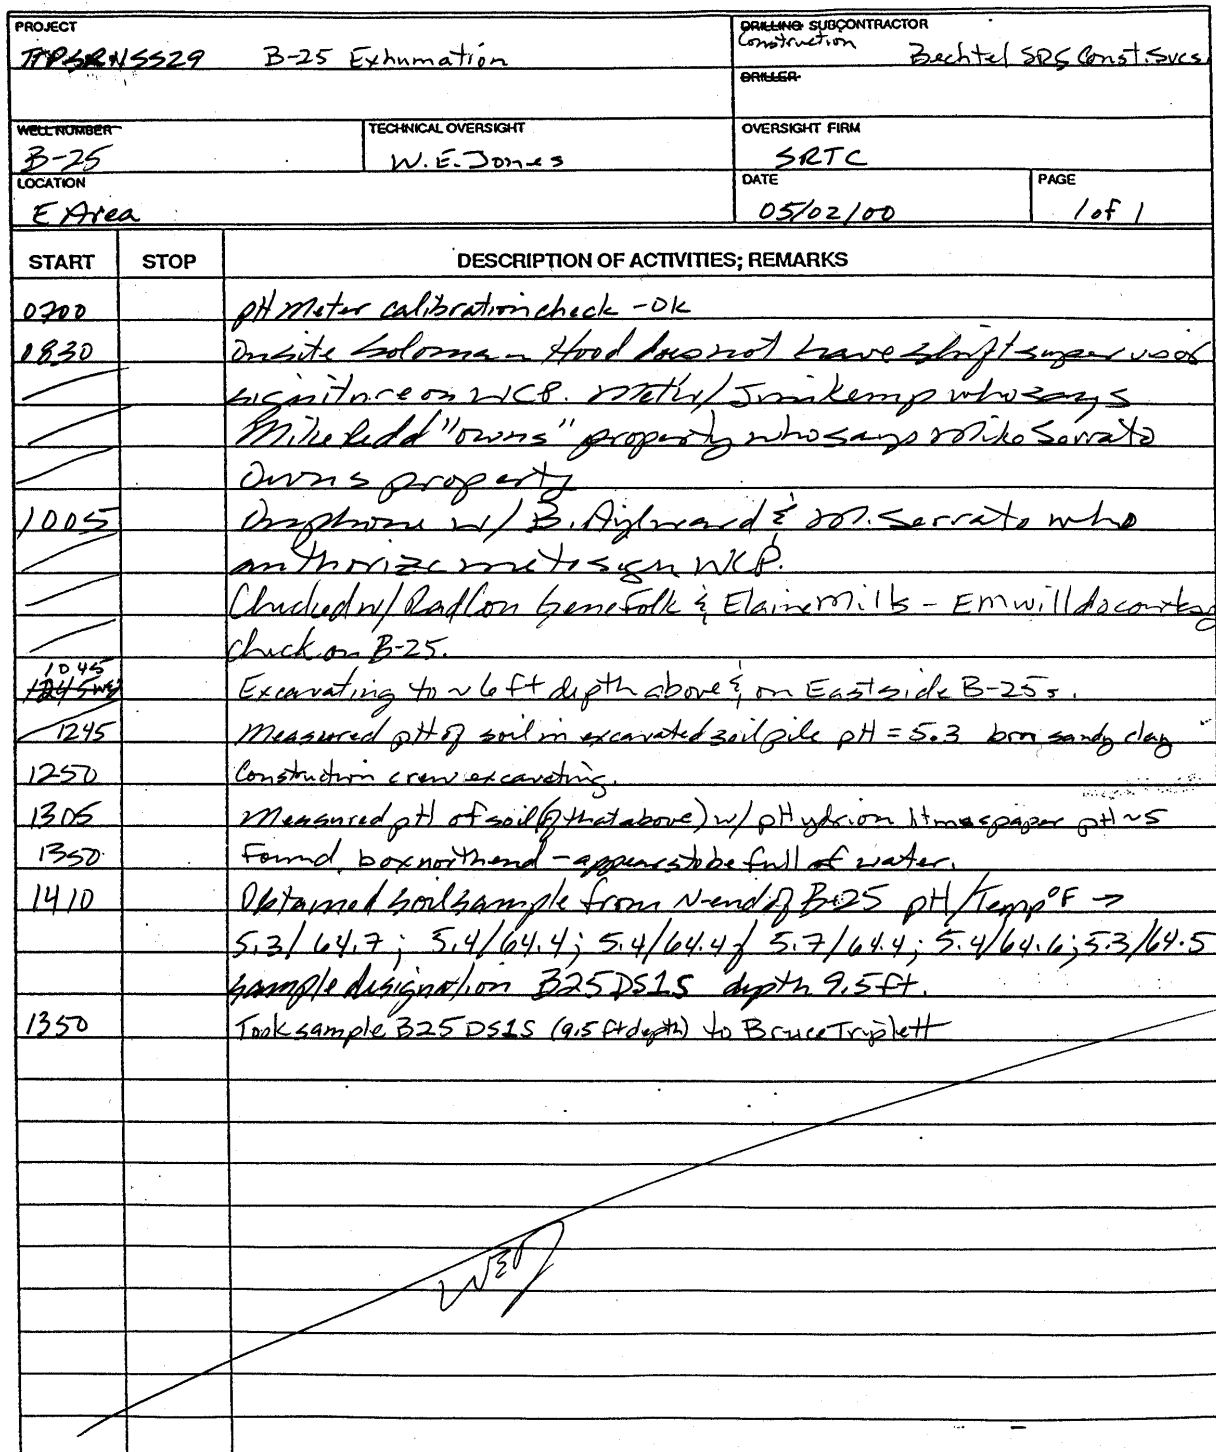 PROJECT
TTPSRNSS29 B-25 Exhumation
DRILLING SUBCONTRACTOR
Construction
Bechtel SRS Const. Svcs
DRILLER
WELL NUMBER
B-25
TECHNICAL OVERSIGHT
W.E. Jones
OVERSIGHT FIRM
SRTC
LOCATION
E Area
DATE
05/02/00
PAGE
1 of 1
START STOP DESCRIPTION OF ACTIVITIES; REMARKS
0700 pH Meter calibration check - OK
0830 Onsite Soloman Hood does not have shift supervisor
signature on WCP. Met w/ Jim Kemp who says
Mike Redd "owns" property who says Mike Serrato
owns property
1005 On phone w/ B. Aylward & M. Serrato who
authorize me to sign WCP.
Checked w/ RadCon Gene Folk & Elaine Mills - EM will do courtesy
check on B-25.
1045
1245 WEJ Excavating to ~ 6 ft depth above & on East side B-25s.
1245 Measured pH of soil in excavated soil pile pH = 5.3 brn sandy clay
1250 Construction crew excavating.
1305 Measured pH of soil (of that above) w/ pHydrion litmus paper pH ~ 5
1350 Found box north end - appears to be full of water.
1410 Obtained soil sample from N-end of B-25 pH/Temp °F →
5.3/64.7; 5.4/64.4; 5.4/64.4; 5.7/64.4; 5.4/64.6; 5.3/64.5
sample designation B25DS1S depth 9.5 ft.
1350 Took sample B25DS1S (9.5 ft depth) to Bruce Triplett
WEJ